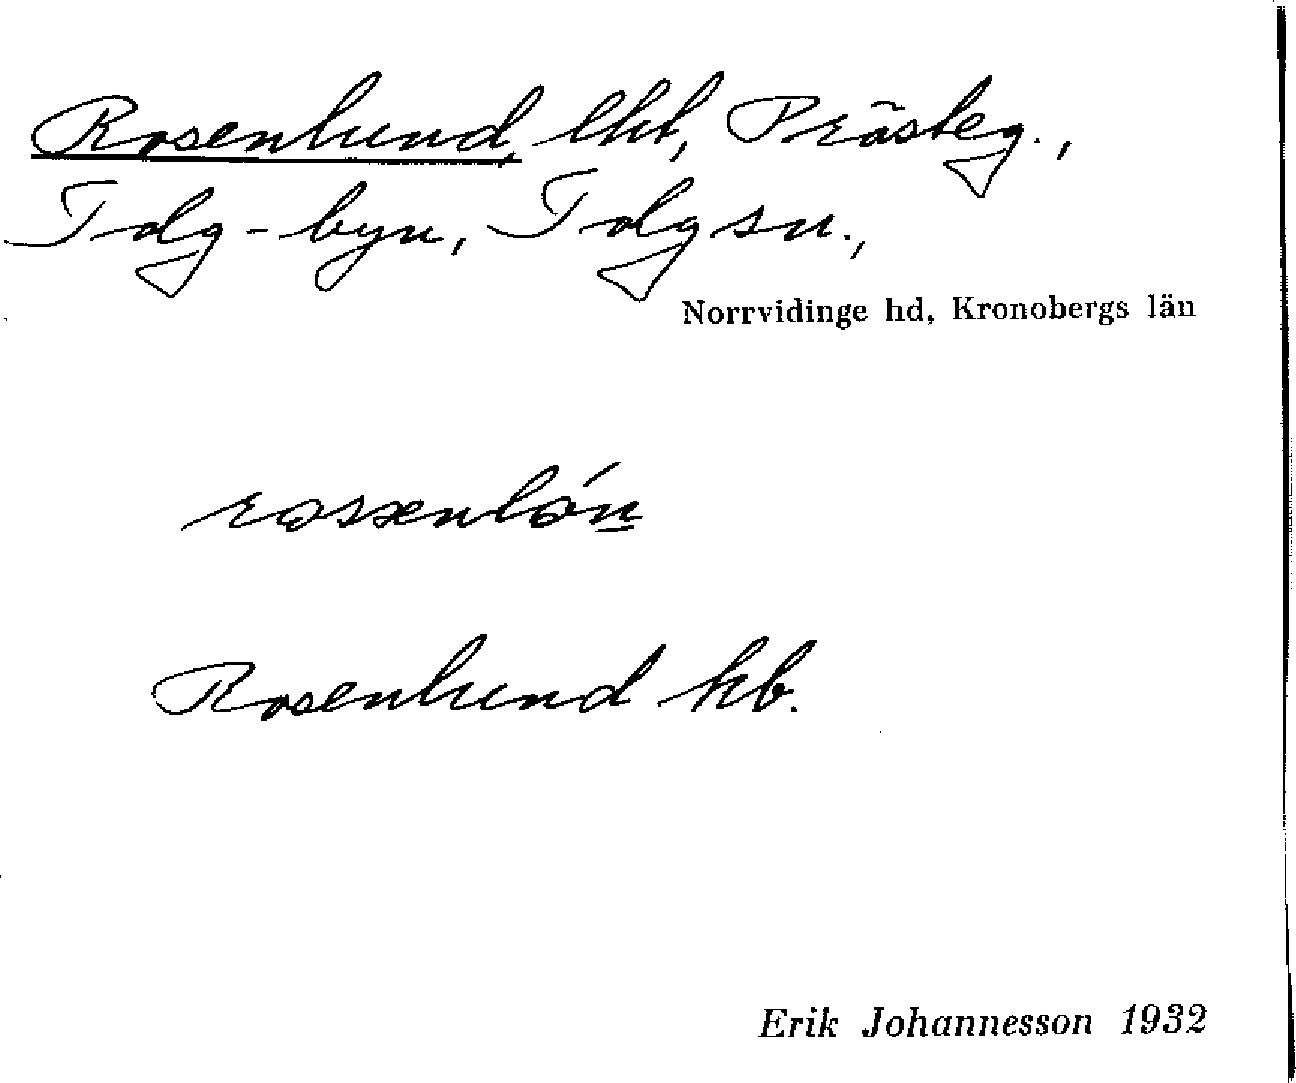 Rosenlund, lht, Prästeg.,
Tolg-byn, Tolg sn.,
Norrvidinge hd, Kronobergs län
Rosenlund hb.
Erik Johannesson 1932